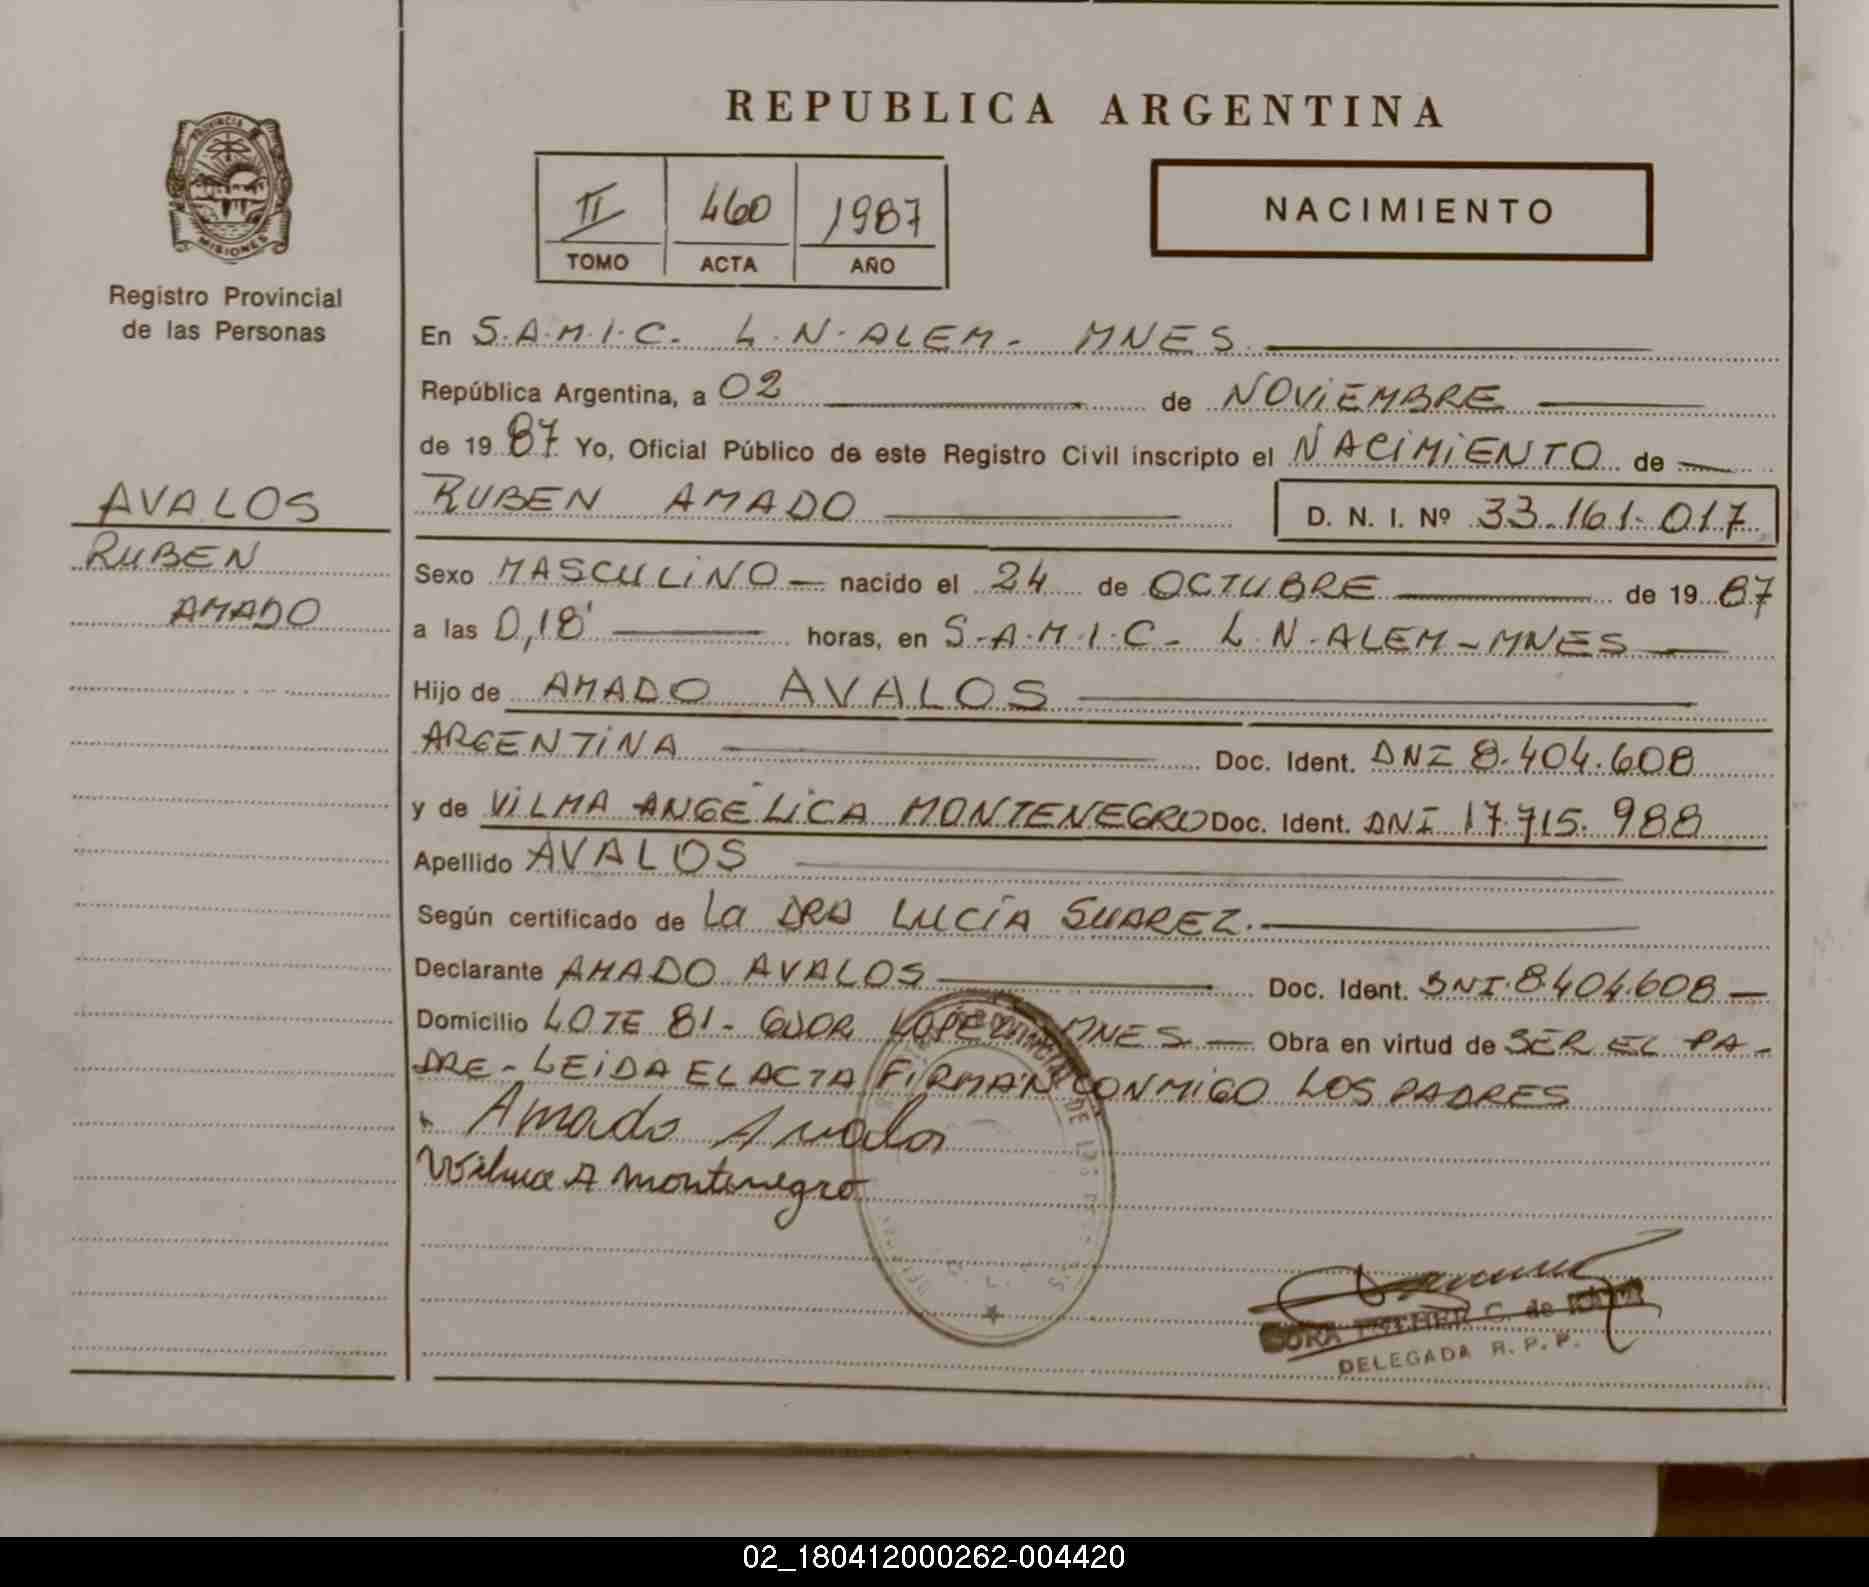 REPUBLICA ARGENTINA
PROVINCIA
MISIONES
Registro Provincial
de las Personas
II 460 1987
TOMO ACTA AÑO
NACIMIENTO
En S.A.M.I.C. L.N. ALEM - MNES
República Argentina, a 02 de NOVIEMBRE
de 19 87 Yo, Oficial Público de este Registro Civil inscripto el NACIMIENTO de
AVALOS
RUBEN
AMADO
RUBEN AMADO D. N. I. Nº 33.161.017
Sexo MASCULINO nacido el 24 de OCTUBRE de 19 87
a las 0,18' horas, en S.A.M.I.C - L.N. ALEM - MNES
Hijo de AMADO AVALOS
ARGENTINA Doc. Ident. DNI 8.404.608
y de VILMA ANGELICA MONTENEGRO Doc. Ident. DNI 17.715.988
Apellido AVALOS
Según certificado de La DRA LUCÍA SUAREZ.
Declarante AMADO AVALOS Doc. Ident. DNI 8.404.608
Domicilio LOTE 81 - GDOR LOPEZ - MNES - Obra en virtud de SER EL PA-
DRE - LEIDA EL ACTA FIRMAN CONMIGO LOS PADRES
Amado Avalos
Vilma A Montenegro
DELEGADA R. P. P.
02_180412000262-004420